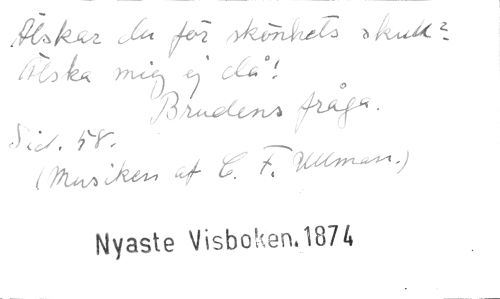 Älskar du för skönhets skull?
Älska mig ej då!
Brudens fråga.
Sid. 58.
(Musiken af C. F. Ullman.)
Nyaste Visboken. 1874